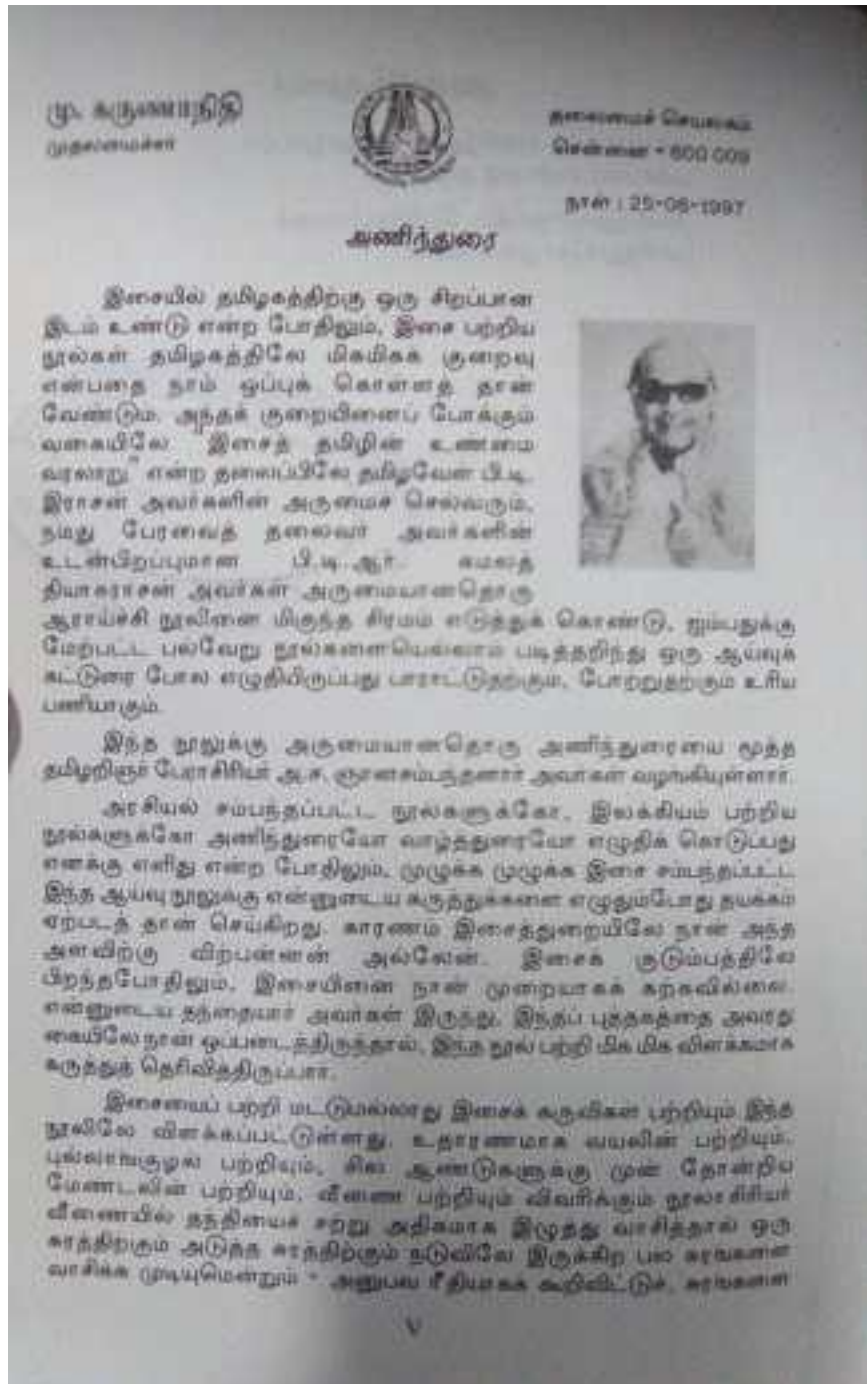 மு. கருணாநிதி
முதலமைச்சர்
தலைமைச் செயலகம்
சென்னை - 600 009
நாள் : 25-06-1997
அணிந்துரை
இசையில் தமிழகத்திற்கு ஒரு சிறப்பான
இடம் உண்டு என்ற போதிலும், இசை பற்றிய
நூல்கள் தமிழகத்திலே மிகமிகக் குறைவு
என்பதை நாம் ஒப்புக் கொள்ளத் தான்
வேண்டும். அந்தக் குறையினைப் போக்கும்
வகையிலே "இசைத் தமிழின் உண்மை
வரலாறு" என்ற தலைப்பிலே தமிழவேள் பி.டி.
இராசன் அவர்களின் அருமைச் செல்வரும்,
நமது பேரவைத் தலைவர் அவர்களின்
உடன்பிறப்புமான பி.டி.ஆர். கமலத்
தியாகராசன் அவர்கள் அருமையானதொரு
ஆராய்ச்சி நூலினை மிகுந்த சிரமம் எடுத்துக் கொண்டு, ஐம்பதுக்கு
மேற்பட்ட பல்வேறு நூல்களையெல்லாம் படித்தறிந்து ஒரு ஆய்வுக்
கட்டுரை போல எழுதியிருப்பது பாராட்டுதற்கும், போற்றுதற்கும் உரிய
பணியாகும்.
இந்த நூலுக்கு அருமையானதொரு அணிந்துரையை மூத்த
தமிழறிஞர் பேராசிரியர் அ.ச. ஞானசம்பந்தனார் அவர்கள் வழங்கியுள்ளார்.
அரசியல் சம்பந்தப்பட்ட நூல்களுக்கோ, இலக்கியம் பற்றிய
நூல்களுக்கோ அணிந்துரையோ வாழ்த்துரையோ எழுதிக் கொடுப்பது
எனக்கு எளிது என்ற போதிலும், முழுக்க முழுக்க இசை சம்பந்தப்பட்ட
இந்த ஆய்வு நூலுக்கு என்னுடைய கருத்துக்களை எழுதும்போது தயக்கம்
ஏற்படத் தான் செய்கிறது. காரணம் இசைத்துறையிலே நான் அந்த
அளவிற்கு விற்பன்னன் அல்லேன். இசைக் குடும்பத்திலே
பிறந்தபோதிலும், இசையினை நான் முறையாகக் கற்கவில்லை.
என்னுடைய தந்தையார் அவர்கள் இருந்து, இந்தப் புத்தகத்தை அவரது
கையிலே நான் ஒப்படைத்திருந்தால், இந்த நூல் பற்றி மிக மிக விளக்கமாக
கருத்துத் தெரிவித்திருப்பார்.
இசையைப் பற்றி மட்டுமல்லாது இசைக் கருவிகள் பற்றியும் இந்த
நூலிலே விளக்கப்பட்டுள்ளது. உதாரணமாக வயலின் பற்றியும்,
புல்லாங்குழல் பற்றியும், சில ஆண்டுகளுக்கு முன் தோன்றிய
மேண்டலின் பற்றியும், வீணை பற்றியும் விவரிக்கும் நூலாசிரியர்
வீணையில் தந்தியைச் சற்று அதிகமாக இழுத்து வாசித்தால் ஒரு
சுரத்திற்கும் அடுத்த சுரத்திற்கும் நடுவிலே இருக்கிற பல சுரங்களை
வாசிக்க முடியுமென்றும் - அனுபவ ரீதியாகக் கூறிவிட்டுச், சுரங்களை
V